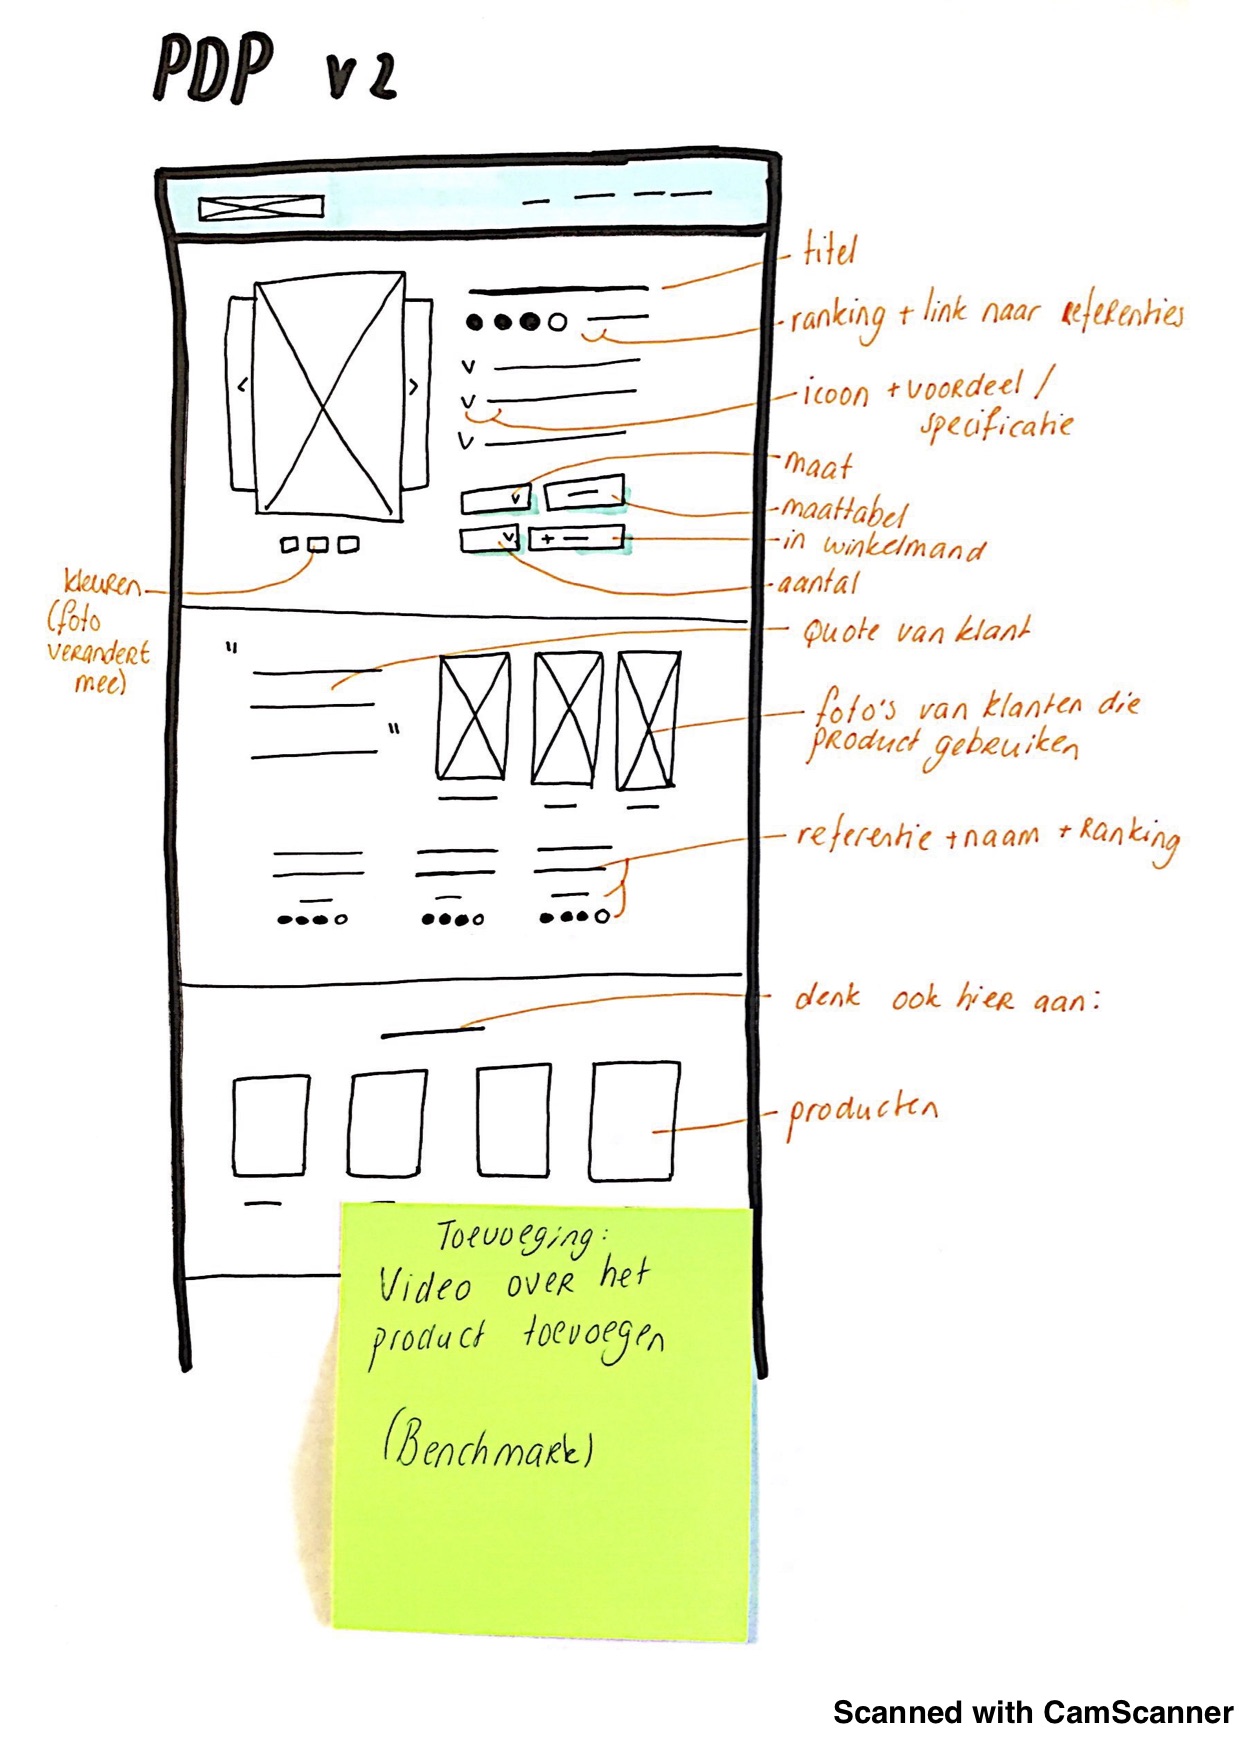 PDP v2
titel
ranking + link naar referenties
icoon + voordeel /
specificatie
maat
maattabel
in winkelmand
aantal
kleuren
(foto
verandert
mee)
Quote van klant
foto's van klanten die
product gebruiken
referentie + naam + Ranking
denk ook hier aan:
producten
Toevoeging:
Video over het
product toevoegen
(Benchmark)
Scanned with CamScanner